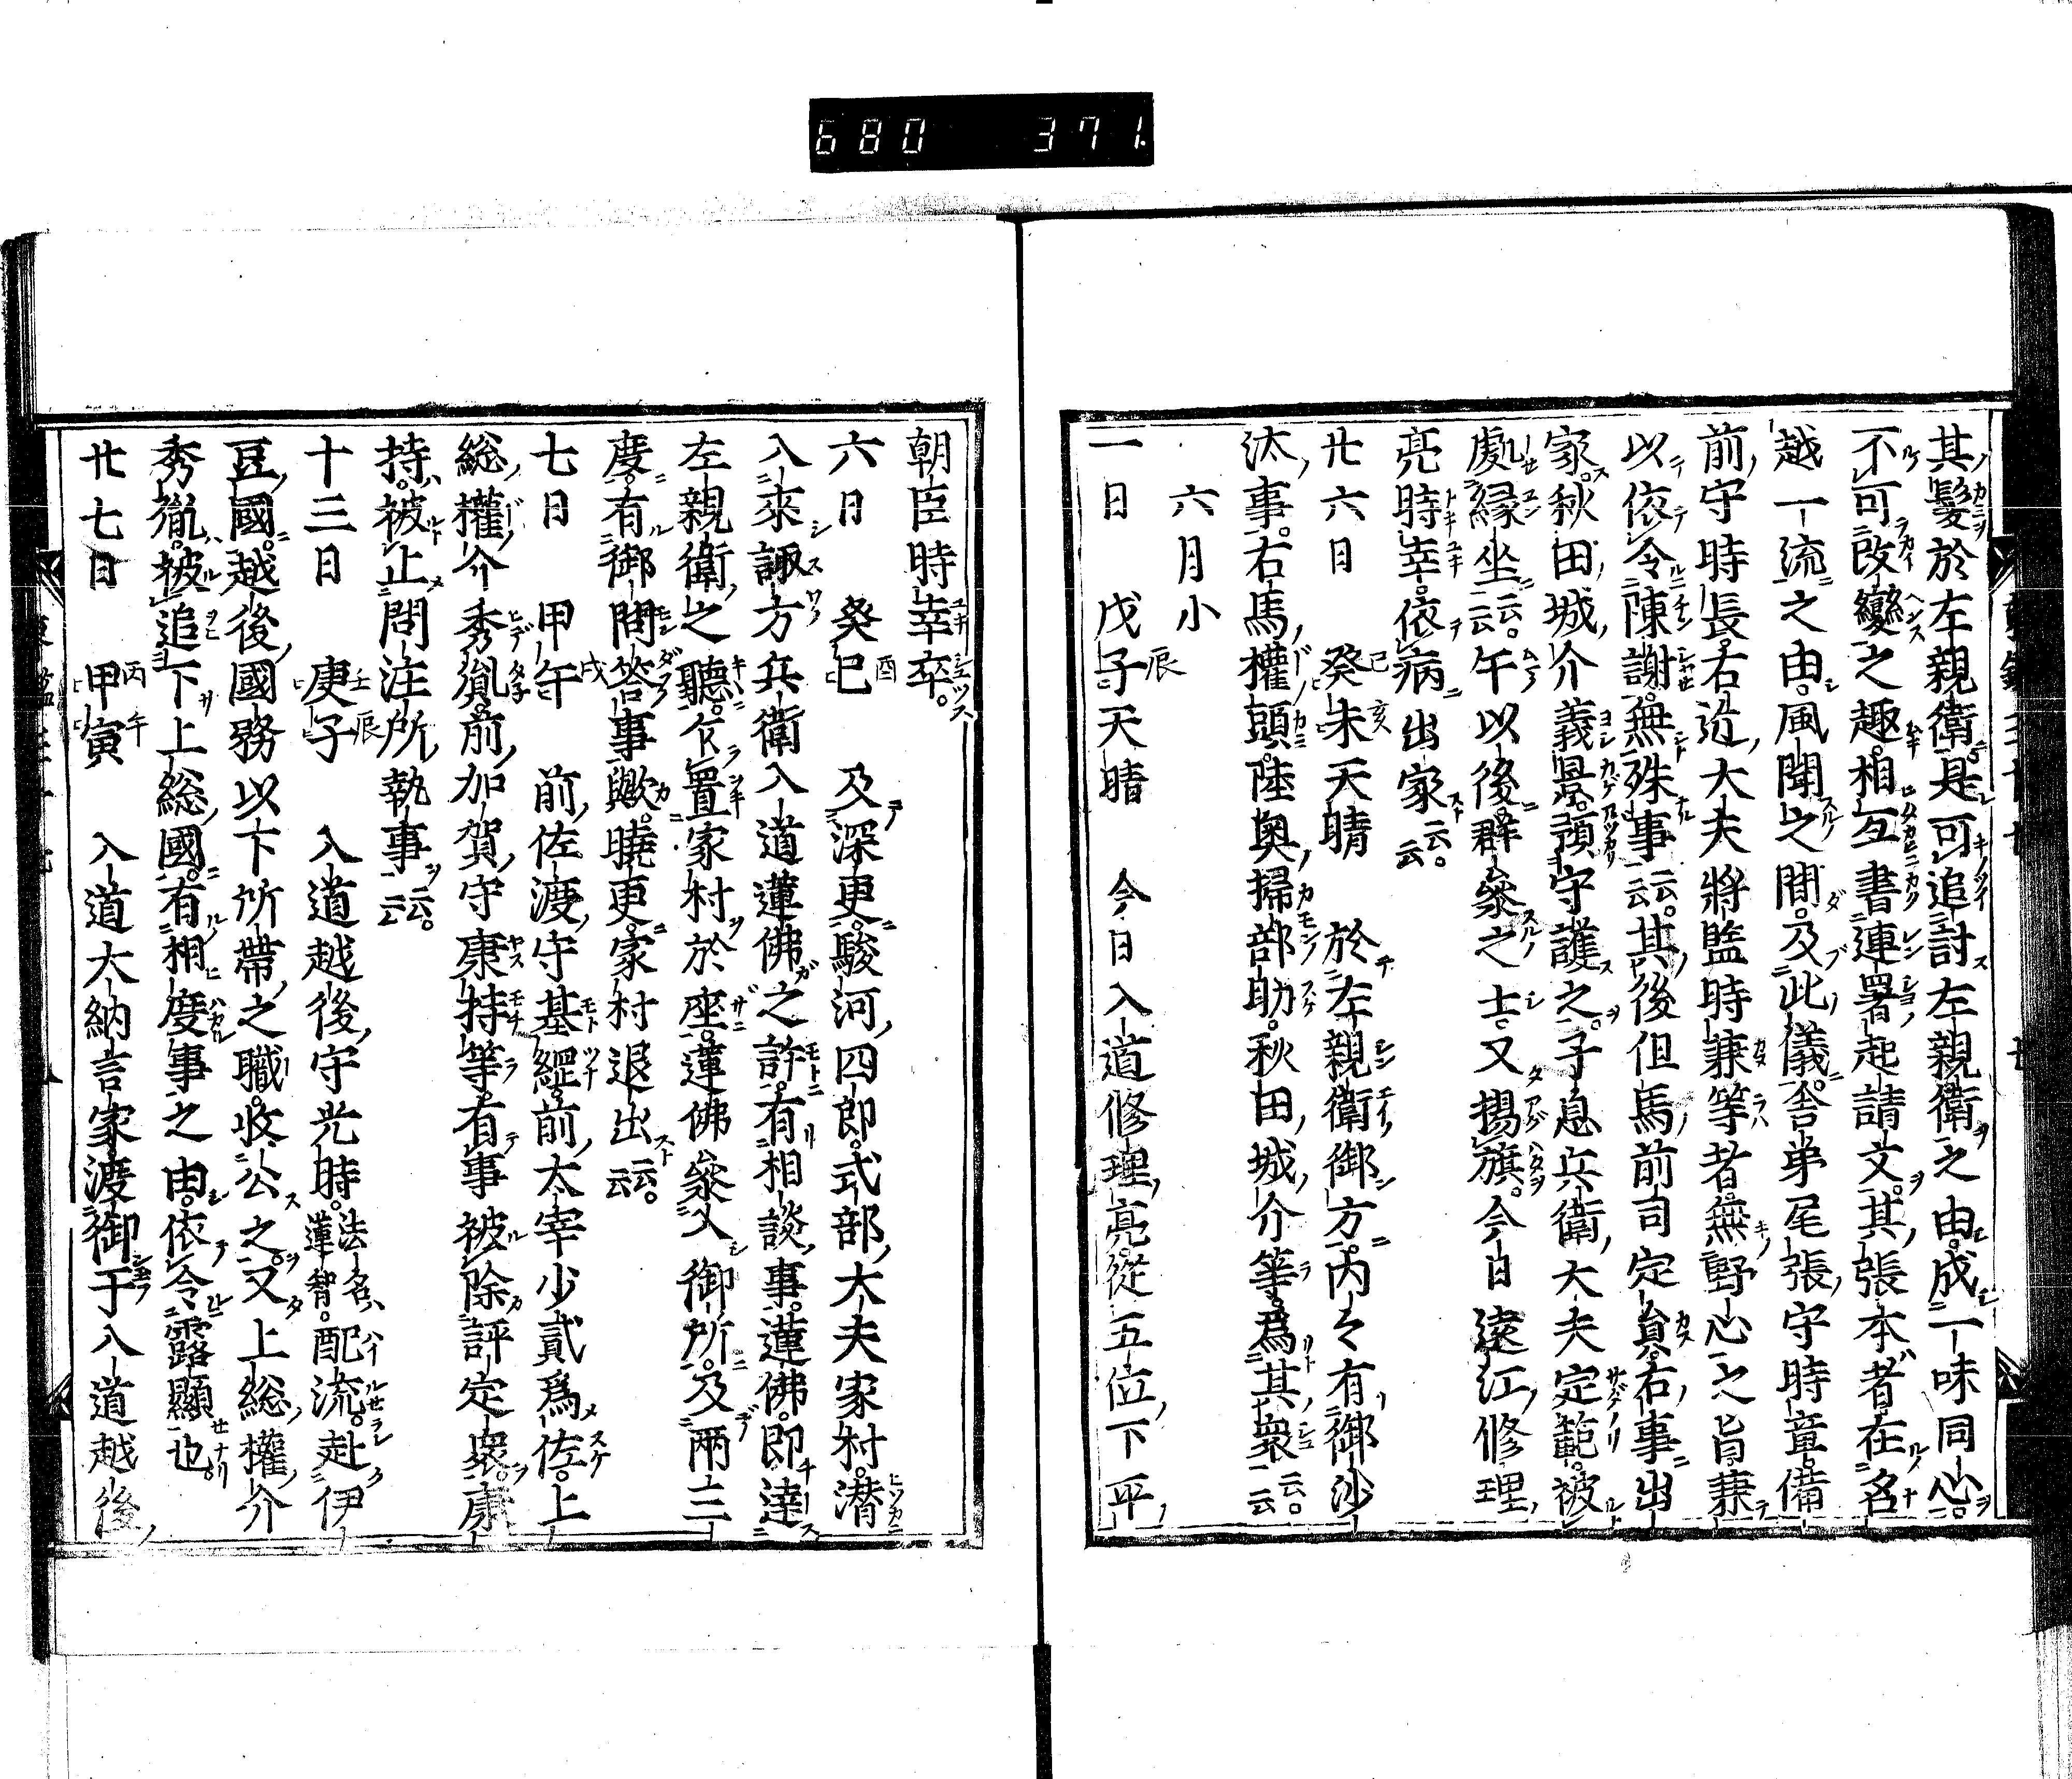 680 371
其髮於左親衛是可追討左親衛之由成一味同心
不可改變之趣相互書連署起請文其張本者在名
越一流之由風聞之間及此儀舎弟尾張守時章備
前守時長右近大夫將監時兼等者無野心之旨兼
以依令陳謝無殊事云云其後但馬前司定員右事出
家秋田城介義景預守護之子息兵衛大夫定範被
處縁坐云云午以後群參之士又揚旗今日遠江修理
亮時幸依病出家云云
廿六日 癸未天晴 於左親衛御方内々有御沙
汰事右馬權頭陸奧掃部助秋田城介等爲其衆云云
六月小
一日 戊子天晴 今日入道修理亮從五位下平
朝臣時幸卒
六日 癸巳 及深更駿河四郎式部大夫家村潜
入來諏方兵衛入道蓮佛之許有相談事蓮佛即達
左親衛之聽仰置家村於座蓮佛參入御所及兩三
度有御問答事歟曉更家村退出云云
七日 甲午 前佐渡守基綱前太宰少貳爲佐上
総權介秀胤前加賀守康持等有事被除評定衆康
持被止問注所執事云云
十三日 庚子 入道越後守光時法名蓮智配流赴伊
豆國越後國務以下所帶之職收公之又上総權介
秀胤被追下上総國有相度事之由依令露顯也
廿七日 甲寅 入道大納言家渡御于入道越後